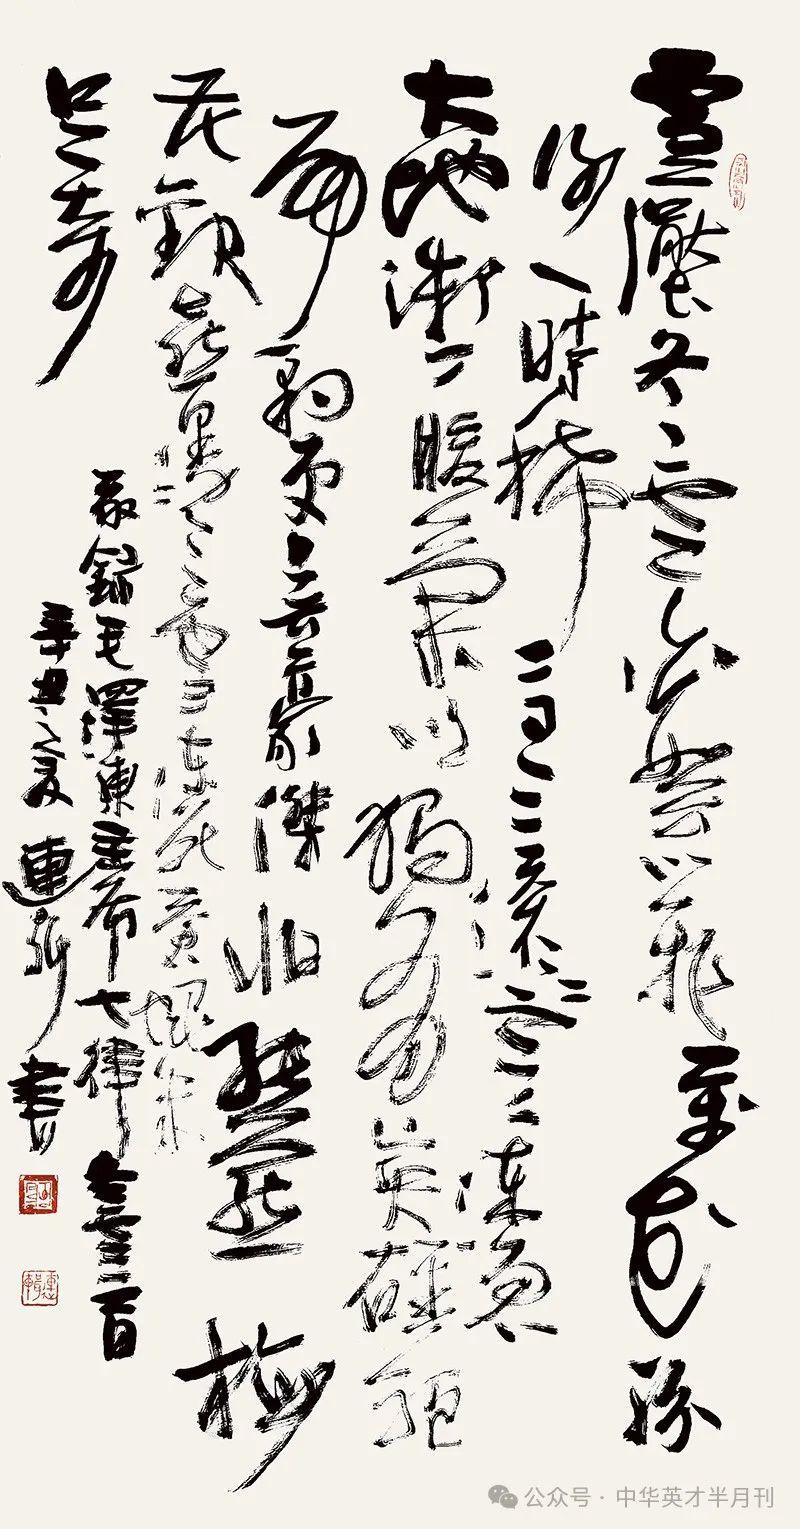 雪壓冬雲白絮飛萬花紛
謝一時稀高天滾滾寒流急
大地微微暖氣吹獨有英雄驅
虎豹更無豪傑怕熊羆梅
花歡喜漫天雪凍死蒼蠅未
足奇
敬錄毛澤東主席七律冬雲一首
辛丑之夏連輯書
公众号·中华英才半月刊